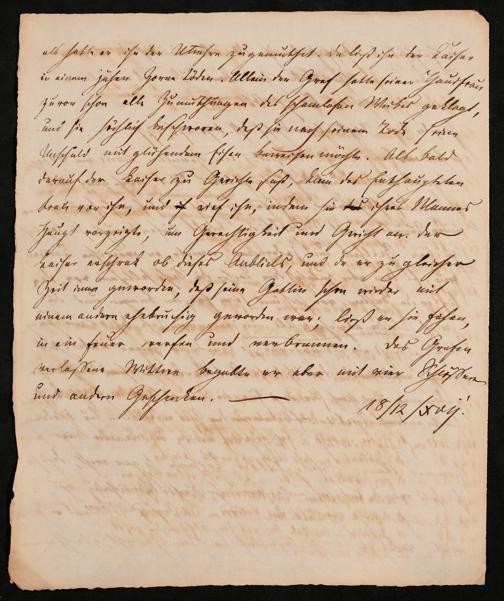 als hätte er ihr der Unehre zugemuthet. da ließ ihn der Kaiser
in einem jähen Zorne tödten. Allein der Graf hatte seiner Hausfrau
zuvor schon alle Zumuthungen des schamlosen Weibes geklagt,
und sie höchlich beschworen, daß sie nach seinem Tode seine
Unschuld mit glühendem Eisen beweisen möchte. Als bald
darauf der Kaiser zu Gerichte saß, kam des Enthaupteten
vor ihn, und rief ihn, indem sie ihres Mannes
Haupt vorzeigte, um Gerechtigkeit und Gericht an. der
Kaiser erschrak ob dieses Anblicks, und da er zu gleicher
Zeit inne geworden, daß seine Gattin schon wieder mit
einem andern ehebrüchig geworden war; ließ er sie fahen,
in ein Feuer werfen und verbrennen. Des Grafen
verlassene Wittwe begabte er aber mit vier Schlössern
und andern Geschenken. —
18/12